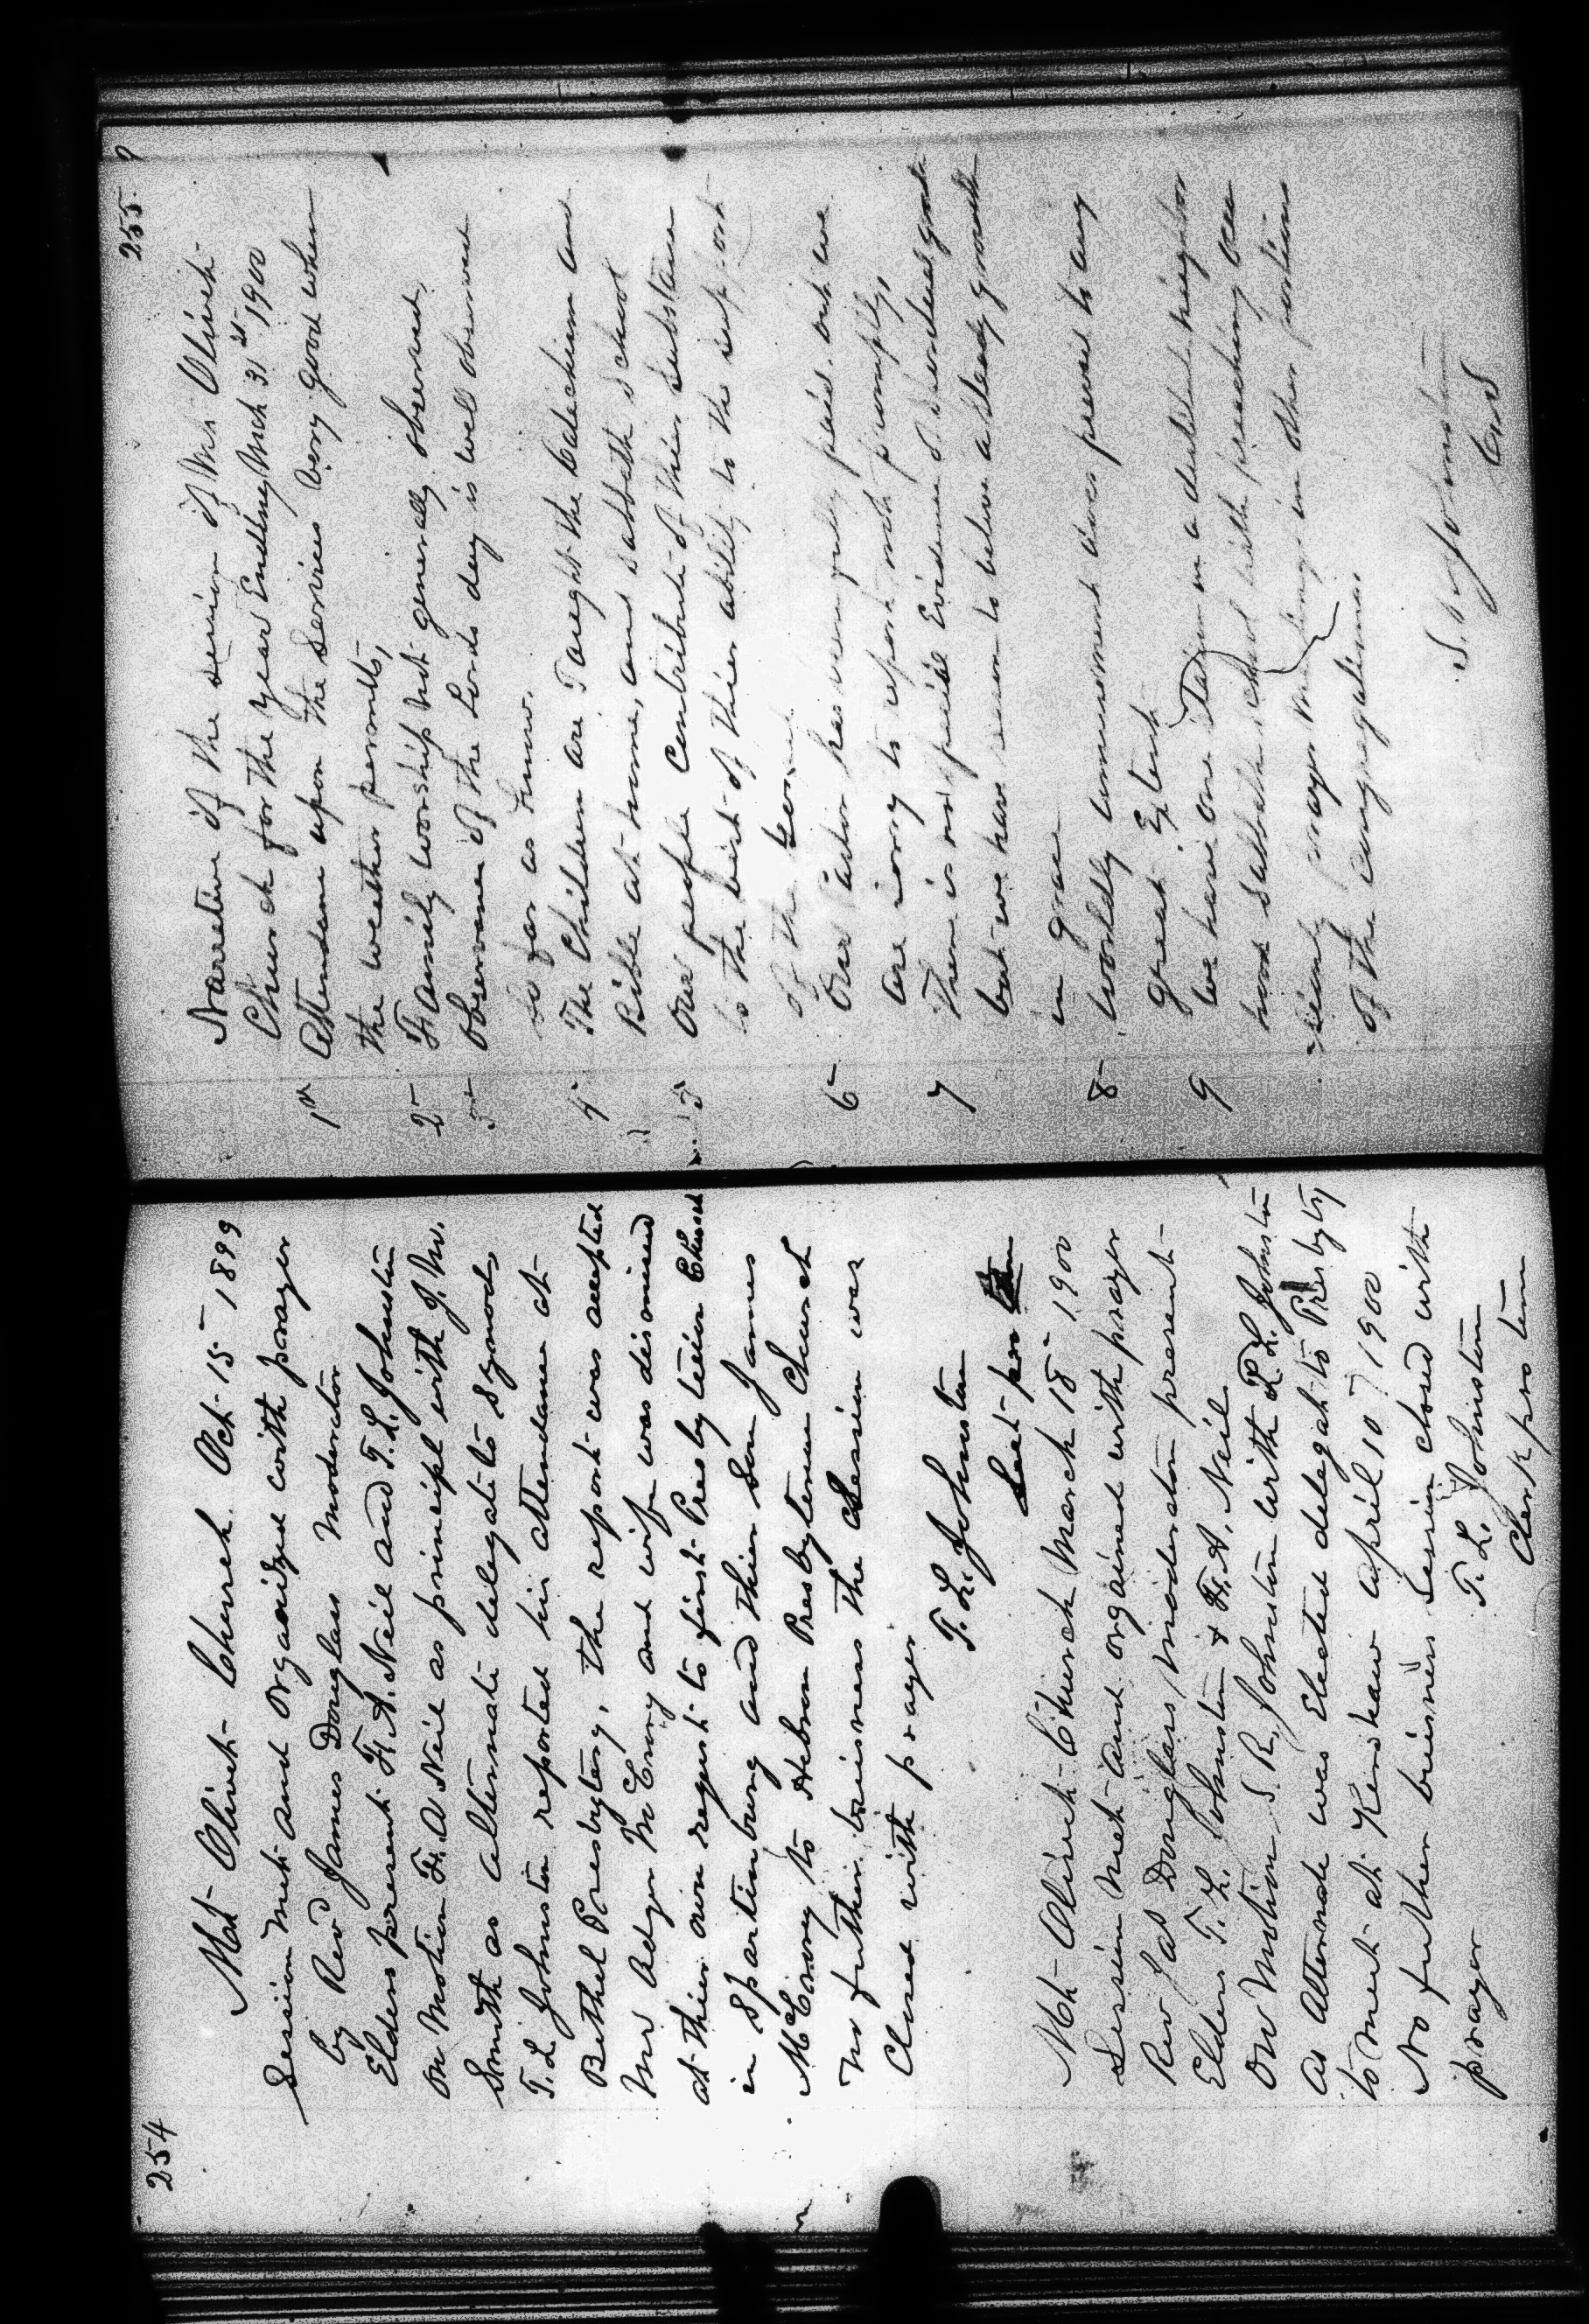 254
Mt Olivet Church Oct 15 1899
Session met and organized with prayer
by Rev James Douglas Moderator
Elders present F. A. Neil and T. L. Johnston
On Motion F. A Neil as principl with J. M.
Smith as alternate delegate to Synod
T. L Johnston reported his attendance at
Bethel Presbytery, the report was accepted
Mr Adger McCrory and wife was dismissed
at thier own request to first Presbyterian Church
in Spartinburg and thier Son James
McCrory to Hebron Presbyterian Church
no futher business the Session was
Closed with prayer
T. L. Johnston
Sect pro tem
Mt Olivet Church March 18 1900
Session met and organed with prayer
Rev Jas Douglass Moderator present
Elders T. L. Johnston & F. A. Neil
On Motion S. R. Johnston with T. L. Johnston
as Alternate was Elected delegat to Presbytry
to meet at Kershaw April 10 1900
No futher business Session closed with
prayer
T. L. Johnston
Clerk pro tem
255
Narrative of the session of Mt Olivet
Church for the year Ending Mch 31st 1900
1st Attendance upon the Services Very good when
the weather permits,
2 Family worship not generally observed,
3 Observance of the Lords day is well observed
so far as know.
4 The Children are Taught the Catechism and
Bible at home, and sabbath School
5 Our people Contribute of thier substance
to the best of thier ability to the support
of the Gospel
6 Our Pastor has been fully paid. but we
are sorry to report not promptly,
7 There is no special Evidence of spiritual growth
but we have reason to believe a steady growth
in grace
8 Worldly amusement does prevail to any
great Extent
9 We have one Station in a destitute neighbor
hood sabbath school with preaching
prayer meetings in other portions
of the congregation.
S. R. Johnston
C. S